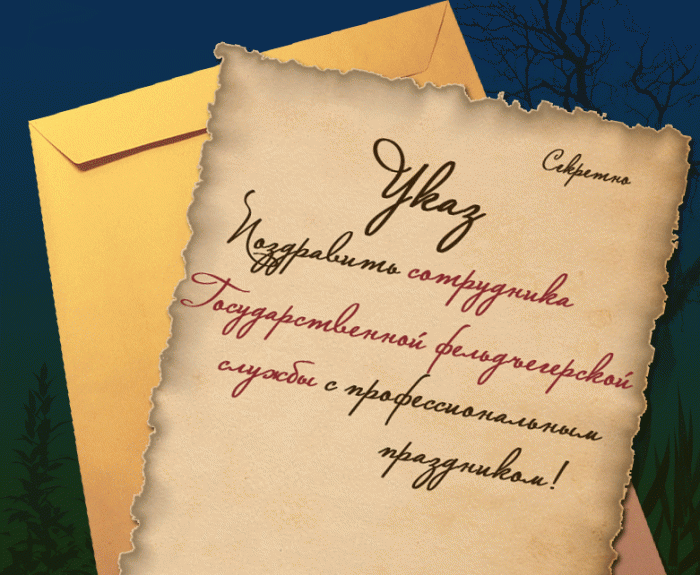 Секретно
Указ
Поздравить сотрудника
Государственной фельдъегерской
службы с профессиональным
праздником!